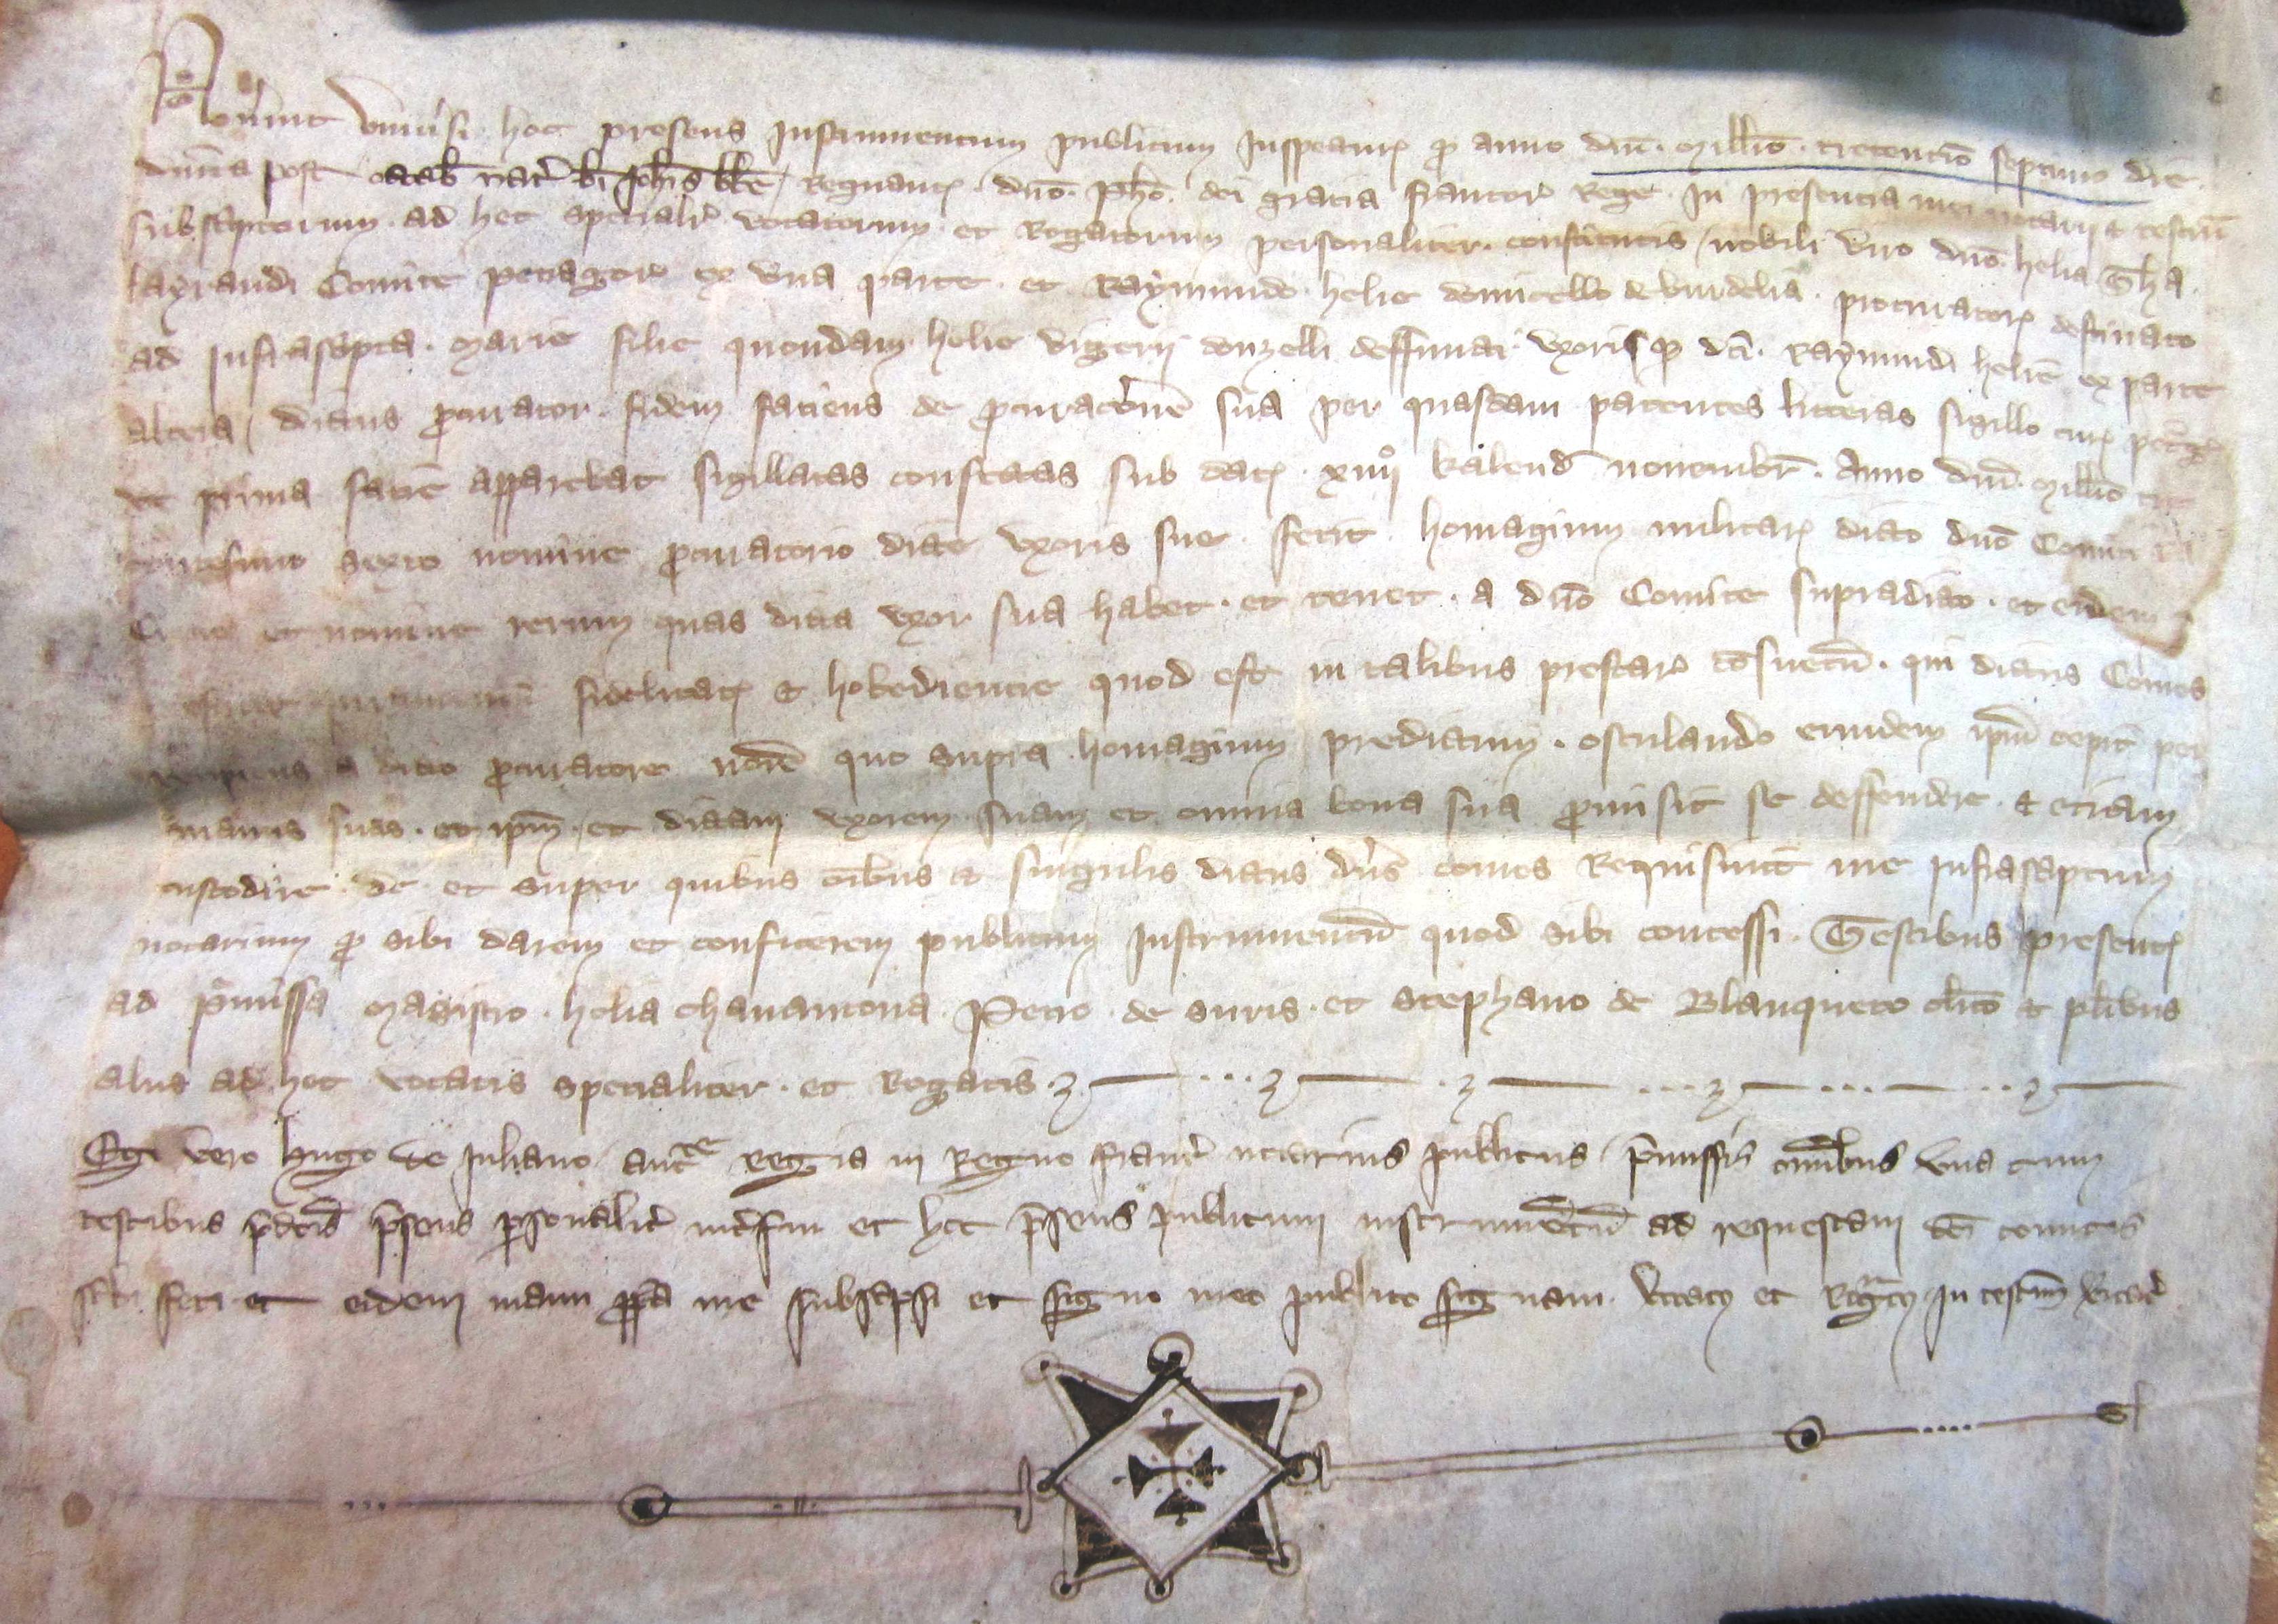 Noverint univ'si hoc presens Instrumentum publicum Inspectur' q' anno dnī. Millīo. trecentēo septimo diē.
dmīca post octab' nat' bī Joh'is bb'te, Regnant'. dnō. Ph'o. dei gratia francor' Rege. In presencia mei notarii & testiū
subscriptorum. ad hec specialit' vocatorum. et Rogatorum personaliter. constitutis, nobili viro dnō. helia Th'a
layrandi Comite petragor' ex una parte. et Raymundo. helie domicello de burdelia. procurator' destinato
ad Infrascripta. Marie filie quondam helie Vigerii donzelli deffuncti uxorisq' dcī. Raymundi helie ex parte
altera, dictus p'curator. fidem faciens de p'curac'one sua per quasdam patentes litteras sigillo cur' pet'g'
ut prima facie apparebat sigillatas confectas sub dat'. xiiijº kalend' novembr'. Anno dnī. Millīo tre
centesimo sexto nomine p'curatorio dicte uxoris sue. fecit homagium militar' dicto dnō Comiti
et nomine rerum quas dicta uxor sua habet. et tenet. a dnō Comite supradicto. et eidem
fidelitat' & hobediencie quod est in talibus prestar' cōsuetū. qui dictus Comes
recipiens a dicto p'curatore noīe quo supra homagium predictum. osculando eumdem ipm̄ cepit per
manus suas. et ipm̄, et dictam uxorem suam et omnia bona sua p'misit se deffendere & etiam
custodire. de et super quibus oībus & singulis dictus dn's comes Requisivit me Infrascriptum
notarium q' sibi darem et conficerem publicum Instrumentū quod sibi concessi. Testibus present'
ad p'missa Magistro. helia chanantona. Petro. de suris. et Stephano de Blanqueto cl'ico & pl'ibus
aliis ad hec vocatis specialiter. et Rogatis.
Ego vero hugo de Juliano, auct'te regia in Regno franc' notarius publicus, p'missis omībus una cum
testibus p'dcīs p'sens p'sonalit' int'fui et hoc p'sens publicum instrumētū ad requestam dcī comitis
sc'bi feci et eidem manu pp'a me subscripsi et signo meo publico signavi vocat' et Rogat' In testim' v'itat'